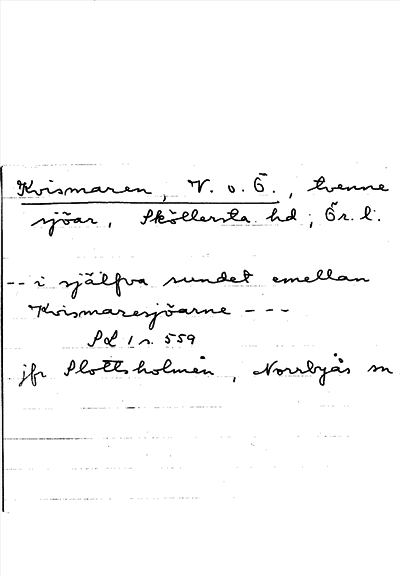 Kvismaren, V. o. Ö., tvenne
sjöar, Sköllersta hd, Ör. l.
-- i själfva sundet emellan
Kvismaresjöarne ---
PL 1 s. 559
jfr Slottsholmen, Norrbyås sn